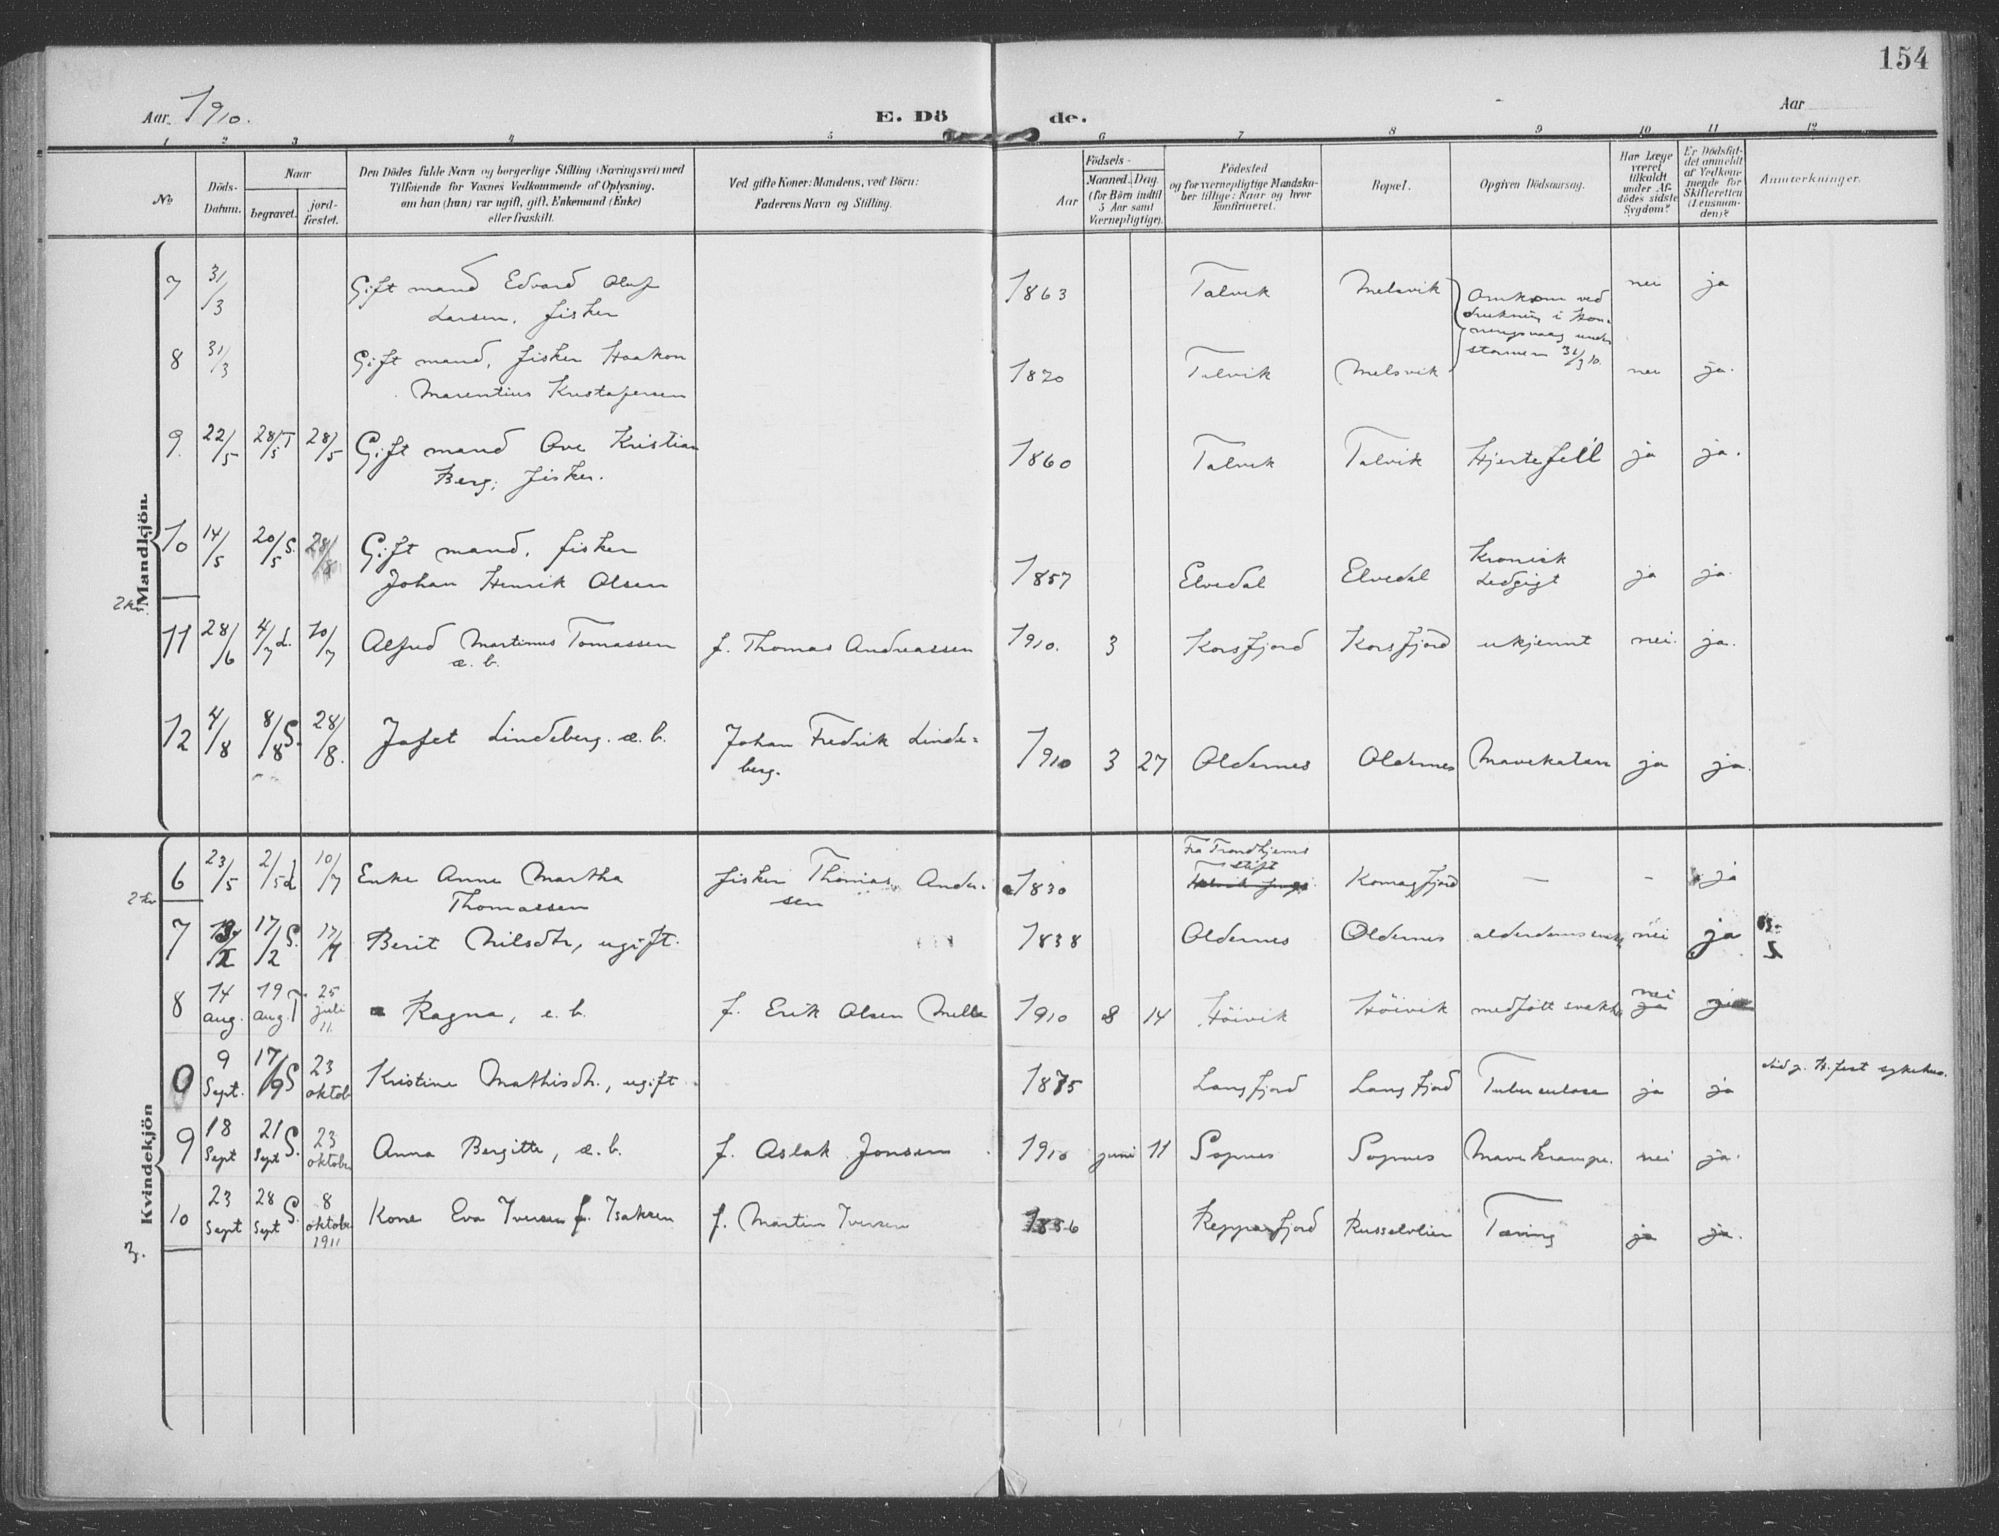 154
Aar 1910.
E. Dö
de.
Aar
1 2 3 4 5 6 7 8 9 10 11 12
No
Döds-
Datum.
Naar
begravet.
jord-
fæstet.
Den Dödes fulde Navn og borgerlige Stilling (Næringsvei) med
Tilföiende for Voxnes Vedkommende af Oplysning,
om han (hun) var ugift, gift, Enkemand (Enke)
eller fraskilt.
Ved gifte Koner: Mandens, ved Börn:
Faderens Navn og Stilling.
Födsels-
Aar
Maaned. Dag
(for Börn indtil
5 Aar samt
Værnepligtige).
Födested
og for værnepligtige Mandska-
ber tillige: Naar og hvor
konfirmeret.
Bopæl.
Opgiven Dödsaarsag.
Har Læge
været
tilkaldt
under Af-
dödes sidste
Sygdom?
Er Dödsfal-
det anmeldt
af Vedkom-
mende for
Skifteretten
(Lensman-
den)?
Anmærkninger.
Mandkjön
7 31/3 Gift mand Edvard Oluf
Larsen, fisker
1863 Talvik Melsvik
Omkom ved
drukning i Hon-
ningsvaag under
stormen 31/3 10.
nei ja
8 31/3 Gift mand, fisker Haakon
Marentius Kristofersen
1870 Talvik Melsvik nei ja.
9. 22/5 28/5 T 28/5 Gift mand Ove Kristian
Berg, fisker.
1860 Talvik Talvik Hjertefeil ja ja.
10 14/5 20/5 S. 28/8 Gift mand, fisker
Johan Henrik Olsen
1857 Elvedal Elvedal Kronisk
Ledgigt ja ja.
2 kv.
11 28/6 4/7 L. 10/7 Alfred Martinus Tomassen
æ. b.
f. Thomas Andreassen 1910. 3 Korsfjord Korsfjord ukjennt nei. ja.
12 4/8 8/8 S. 28/8. Jafet Lindeberg. æ. b. Johan Fredrik Linde-
berg.
1910 3 27 Oldernes Oldernes Mavekatar ja ja.
Kvindekjön
6 23/5 2/5 L 10/7 Enke Anne Martha
Thomassen
fisker Thomas Ander-
sen
1830 Fra Trondhjems
stift
Komagfjord — – ja
2 kv
7 17/2 S. 17/7 Berit Nilsdtr, ugift. 1838 Oldernes Oldernes alderdomssvakh. nei ja
8 14
aug. 19
aug. T. 25
juli
11. Ragna, e. b. f. Erik Olsen Melle 1910 8 14 Höivik Höivik medfött svakh. nei
ja
9
Sept. 17/9 S 23
oktob. Kristine Mathisdtr., ugift. 1875 Langfjord Langfjord Tuberculose ja ja
död p. H.fest sykehus.
9 18
Sept 21
Sept S. 23
oktober Anna Bergitte, æ. b. f. Aslak Jonsen 1910 juni 11 Sopnes Sopnes Mavekrampe. nei ja.
10 23
Sept 28
Sept S. 8
oktober
1911 Kone Eva Iversen f. Isaksen f. Martin Iversen 1836 Repparfjord Russelvlien Tæring ja ja.